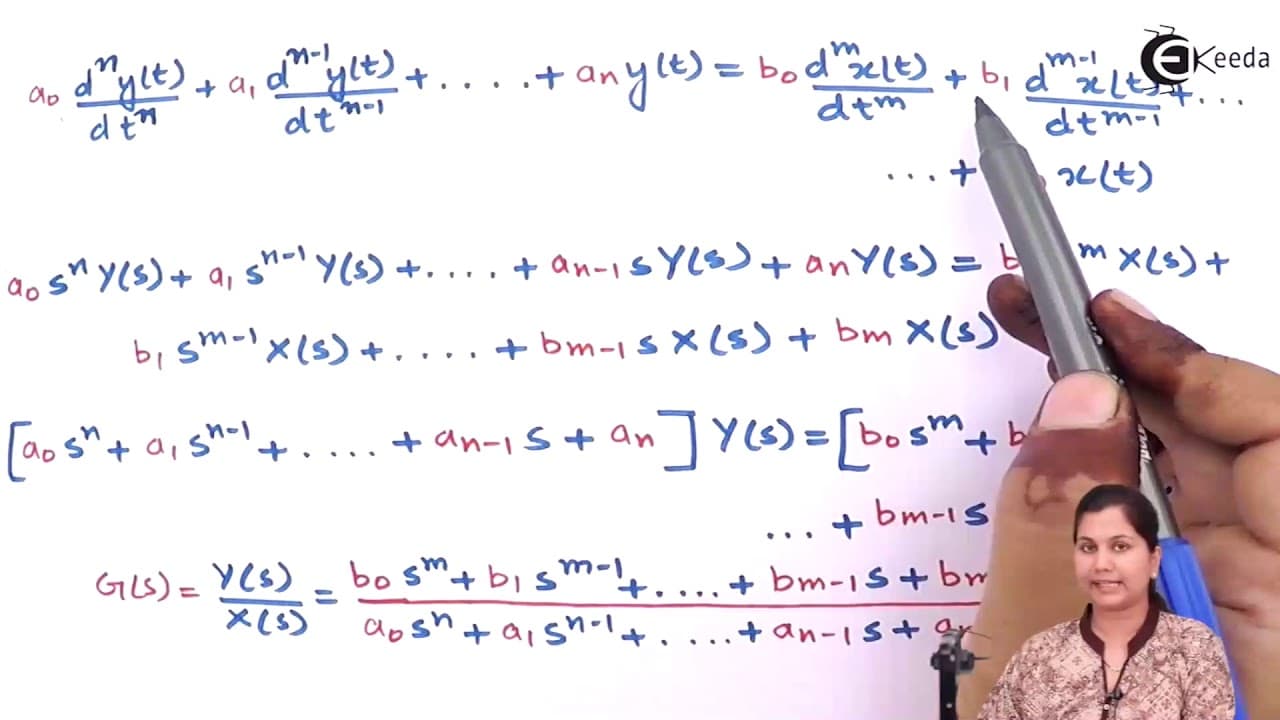 Keeda
a₀ dⁿy(t)/dtⁿ + a₁ dⁿ⁻¹y(t)/dtⁿ⁻¹ + . . . . + aₙ y(t) = b₀ dᵐx(t)/dtᵐ + b₁ dᵐ⁻¹x(t)/dtᵐ⁻¹ + ...
... + x(t)
a₀ sⁿ Y(s) + a₁ sⁿ⁻¹ Y(s) + . . . . + aₙ₋₁ s Y(s) + aₙ Y(s) = b ᵐ X(s) +
b₁ sᵐ⁻¹ X(s) + . . . . + bₘ₋₁ s X(s) + bₘ X(s)
[a₀ sⁿ + a₁ sⁿ⁻¹ + . . . . + aₙ₋₁ s + aₙ] Y(s) = [b₀ sᵐ + b
... + bₘ₋₁ s
G(s) = Y(s)/X(s) = b₀ sᵐ + b₁ sᵐ⁻¹ + . . . . + bₘ₋₁ s + bₘ / a₀ sⁿ + a₁ sⁿ⁻¹ + . . . . + aₙ₋₁ s + aₙ